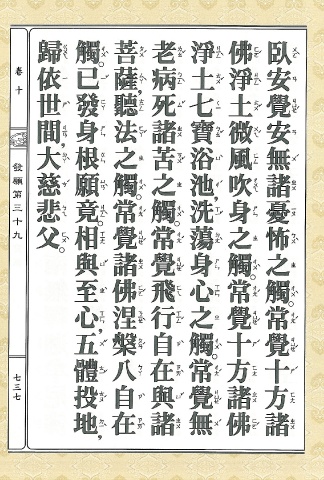 臥安覺安無諸憂怖之觸。常覺十方諸
佛淨土微風吹身之觸。常覺十方諸佛
淨土七寶浴池,洗蕩身心之觸。常覺無
老病死諸苦之觸。常覺飛行自在與諸
菩薩,聽法之觸。常覺諸佛涅槃八自在
觸。已發身根願竟。相與至心,五體投地,
歸依世間,大慈悲父。
卷十
發願第三十九
七三七